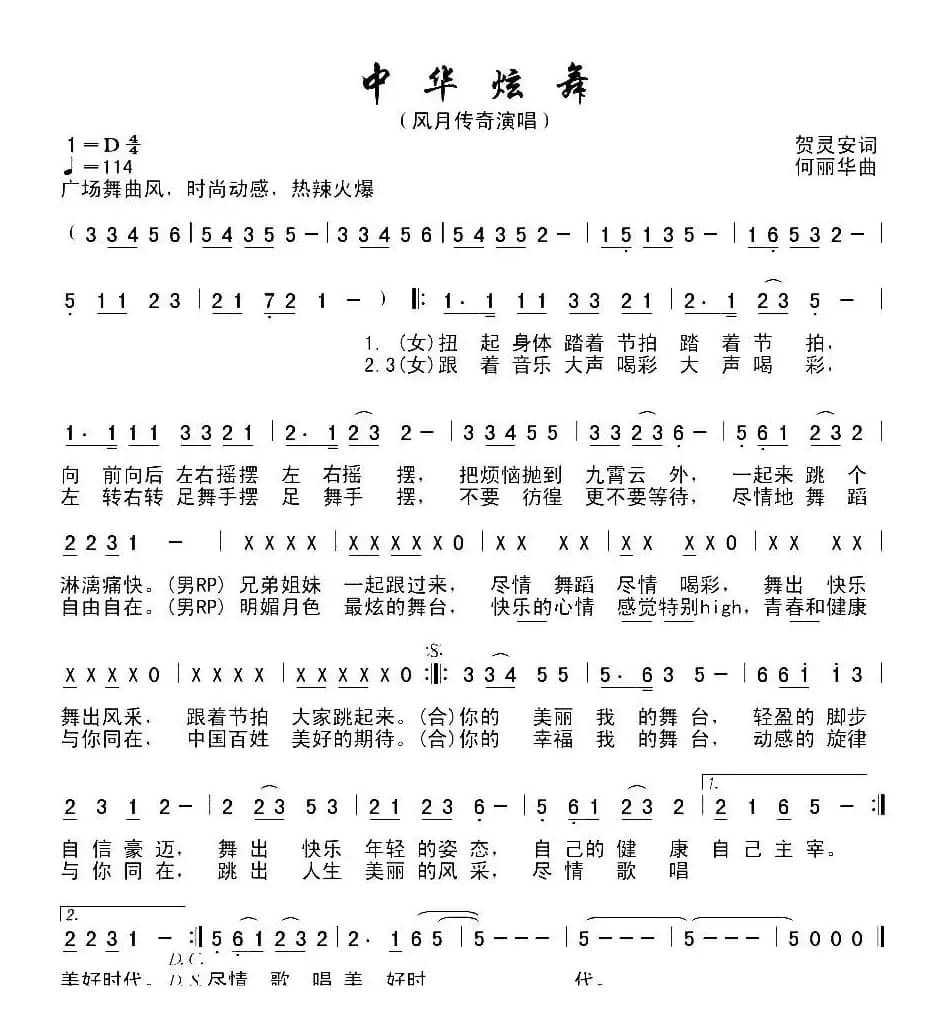 中华炫舞
（风月传奇演唱）
1=D 4/4
贺灵安词
♩=114
何丽华曲
广场舞曲风，时尚动感，热辣火爆
（3 3 4 5 6 | 5 4 3 5 5 - | 3 3 4 5 6 | 5 4 3 5 2 - | 1 5 1 3 5 - | 1 6 5 3 2 - |
5 1 1 2 3 | 2 1 7 2 1 - ）‖: 1· 1 1 1 3 3 2 1 | 2· 1 2 3 5 - |
1. (女)扭 起 身体 踏着 节拍 踏 着 节 拍，
2.3(女)跟 着 音乐 大声 喝彩 大 声 喝 彩，
1· 1 1 1 3 3 2 1 | 2· 1 2 3 2 - | 3 3 4 5 5 | 3 3 2 3 6 - | 5 6 1 2 3 2 |
向 前向后 左右摇摆 左 右摇 摆， 把烦恼抛到 九霄云 外， 一起来 跳 个
左 转右转 足舞手摆 足 舞手 摆， 不要 彷徨 更不要等待， 尽情地 舞 蹈
2 2 3 1 - | X X X X | X X X X X 0 | X X X X | X X X X X | X X X X |
淋漓痛快。(男RP) 兄弟姐妹 一起跟过来， 尽情 舞蹈 尽情 喝彩， 舞出 快乐
自由自在。(男RP) 明媚月色 最炫的舞台， 快乐的心情 感觉特别high，青春和健康
X X X X 0 | X X X X | X X X X X 0 :‖: 3 3 4 5 5 | 5· 6 3 5 - | 6 6 1 1 3 |
舞出风采， 跟着节拍 大家跳起来。(合)你的 美丽 我 的舞 台， 轻盈的 脚步
与你同在， 中国百姓 美好的期待。(合)你的 幸福 我 的舞 台， 动感的 旋律
2 3 1 2 - | 2 2 3 5 3 | 2 1 2 3 6 - | 5 6 1 2 3 2 | 1. 2 1 6 5 - :‖
自 信 豪 迈， 舞 出 快乐 年轻 的 姿 态， 自 己的 健 康 自 己 主 宰。
与 你 同 在， 跳 出 人生 美丽 的 风 采， 尽 情 歌 唱
2. 2 2 3 1 - :‖ 5 6 1 2 3 2 | 2· 1 6 5 | 5 - - - | 5 - - - | 5 - - - | 5 0 0 0 ‖
D.C.
美好时代。 D.S. 尽情 歌 唱 美 好时 代。